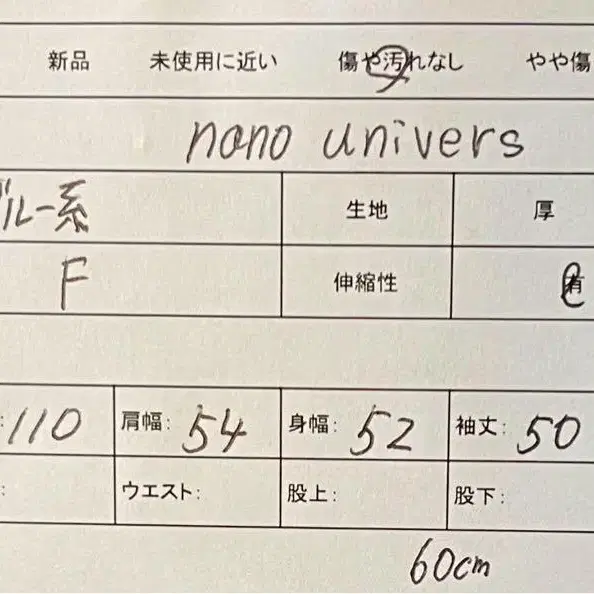 新品 未使用に近い 傷や汚れなし やや傷
nano univers
ブルー系 生地 厚
F 伸縮性 有
110 肩幅: 54 身幅: 52 袖丈: 50
ウエスト: 股上: 股下:
60cm